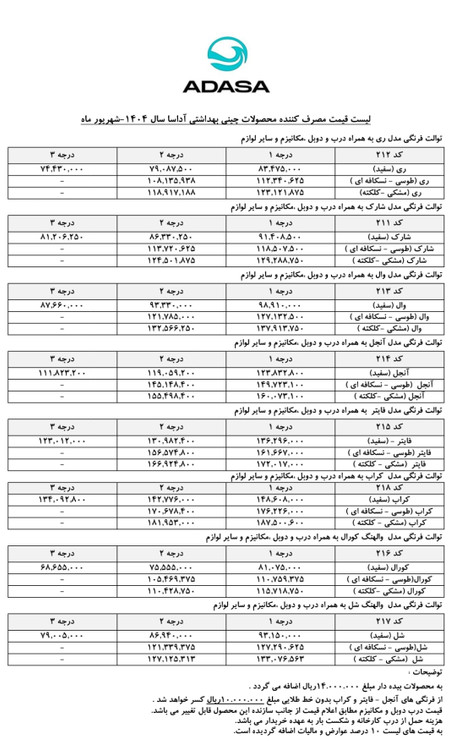 ADASA
لیست قیمت مصرف کننده محصولات چینی بهداشتی آداسا سال ۱۴۰۴-شهریور ماه
توالت فرنگی مدل ری به همراه درب و دوبل ،مکانیزم و سایر لوازم
کد ۲۱۲ درجه ۱ درجه ۲ درجه ۳
ری (سفید) ۸۳,۴۷۵,۰۰۰ ۷۹,۰۸۷,۵۰۰ ۷۴,۴۳۰,۰۰۰
ری (طوسی – نسکافه ای ) ۱۱۲,۳۴۰,۶۲۵ ۱۰۸,۱۳۵,۹۳۸ –
ری (مشکی –کلکته) ۱۲۳,۱۲۱,۸۷۵ ۱۱۸,۹۱۷,۱۸۸ –
توالت فرنگی مدل شارک به همراه درب و دوبل ،مکانیزم و سایر لوازم
کد ۲۱۱ درجه ۱ درجه ۲ درجه ۳
شارک (سفید) ۹۱,۴۰۸,۵۰۰ ۸۶,۳۳۰,۲۵۰ ۸۱,۲۰۶,۲۵۰
شارک (طوسی – نسکافه ای ) ۱۱۸,۵۰۷,۵۰۰ ۱۱۳,۷۲۰,۶۲۵ –
شارک (مشکی –کلکته ) ۱۲۹,۲۸۸,۷۵۰ ۱۲۴,۵۰۱,۸۷۵ –
توالت فرنگی مدل وال به همراه درب و دوبل ،مکانیزم و سایر لوازم
کد ۲۱۳ درجه ۱ درجه ۲ درجه ۳
وال (سفید) ۹۸,۹۱۰,۰۰۰ ۹۳,۳۳۰,۰۰۰ ۸۷,۶۶۰,۰۰۰
وال (طوسی – نسکافه ای ) ۱۲۷,۱۳۲,۵۰۰ ۱۲۱,۷۸۵,۰۰۰ –
وال (مشکی –کلکته ) ۱۳۷,۹۱۳,۷۵۰ ۱۳۲,۵۶۶,۲۵۰ –
توالت فرنگی مدل آنجل به همراه درب و دوبل ،مکانیزم و سایر لوازم
کد ۲۱۴ درجه ۱ درجه ۲ درجه ۳
آنجل (سفید) ۱۲۳,۸۳۲,۸۰۰ ۱۱۹,۰۵۹,۲۰۰ ۱۱۱,۸۲۳,۲۰۰
آنجل (طوسی – نسکافه ای ) ۱۴۹,۷۲۳,۱۰۰ ۱۴۵,۱۴۸,۴۰۰ –
آنجل (مشکی –کلکته ) ۱۶۰,۰۷۳,۱۰۰ ۱۵۵,۴۹۸,۴۰۰ –
توالت فرنگی مدل فایتر به همراه درب و دوبل ،مکانیزم و سایر لوازم
کد ۲۱۵ درجه ۱ درجه ۲ درجه ۳
فایتر – (سفید) ۱۳۶,۲۹۶,۰۰۰ ۱۳۰,۹۸۲,۴۰۰ ۱۲۳,۰۱۲,۰۰۰
فایتر (طوسی – نسکافه ای ) ۱۶۱,۶۶۷,۰۰۰ ۱۵۶,۵۷۴,۸۰۰ –
فایتر (مشکی – کلکته ) ۱۷۲,۰۱۷,۰۰۰ ۱۶۶,۹۲۴,۸۰۰ –
توالت فرنگی مدل کراب به همراه درب و دوبل ،مکانیزم و سایر لوازم
کد ۲۱۸ درجه ۱ درجه ۲ درجه ۳
کراب (سفید) ۱۴۸,۶۰۸,۰۰۰ ۱۴۲,۷۷۶,۰۰۰ ۱۳۴,۰۹۲,۸۰۰
کراب (طوسی – نسکافه ای ) ۱۷۶,۲۲۶,۰۰۰ ۱۷۰,۶۷۸,۴۰۰ –
کراب (مشکی – کلکته ) ۱۸۷,۵۰۰,۶۰۰ ۱۸۱,۹۵۳,۰۰۰ –
توالت فرنگی مدل والهنگ کورال به همراه درب و دوبل ،مکانیزم و سایر لوازم
کد ۲۱۶ درجه ۱ درجه ۲ درجه ۳
کورال (سفید) ۸۱,۰۷۵,۰۰۰ ۷۵,۵۵۵,۰۰۰ ۶۸,۶۵۵,۰۰۰
کورال(طوسی – نسکافه ای ) ۱۱۰,۷۵۹,۳۷۵ ۱۰۵,۴۶۹,۳۷۵ –
کورال (مشکی –کلکته ) ۱۱۵,۷۱۸,۷۵۰ ۱۱۰,۴۲۸,۷۵۰ –
توالت فرنگی مدل والهنگ شل به همراه درب و دوبل ،مکانیزم و سایر لوازم
کد ۲۱۷ درجه ۱ درجه ۲ درجه ۳
شل (سفید ) ۹۳,۱۵۰,۰۰۰ ۸۶,۹۴۰,۰۰۰ ۷۹,۰۰۵,۰۰۰
شل(طوسی – نسکافه ای ) ۱۲۷,۲۹۰,۶۲۵ ۱۲۱,۳۳۹,۳۷۵ –
شل (مشکی – کلکته ) ۱۳۳,۰۷۶,۵۶۳ ۱۲۷,۱۲۵,۳۱۳ –
توضیحات :
به محصولات پیده دار مبلغ ۱۴,۰۰۰,۰۰۰ریال اضافه می گردد .
از فرنگی های آنجل – فایتر و کراب بدون خط طلایی مبلغ ۱۰,۰۰۰,۰۰۰ریال کسر خواهد شد .
قیمت درب دوبل و مکانیزم مطابق اعلام قیمت از جانب سازنده این محصول قابل تغییر می باشد.
هزینه حمل از درب کارخانه و شکست بار به عهده خریدار می باشد.
به قیمت های لیست ۱۰ درصد عوارض و مالیات اضافه گردیده است.